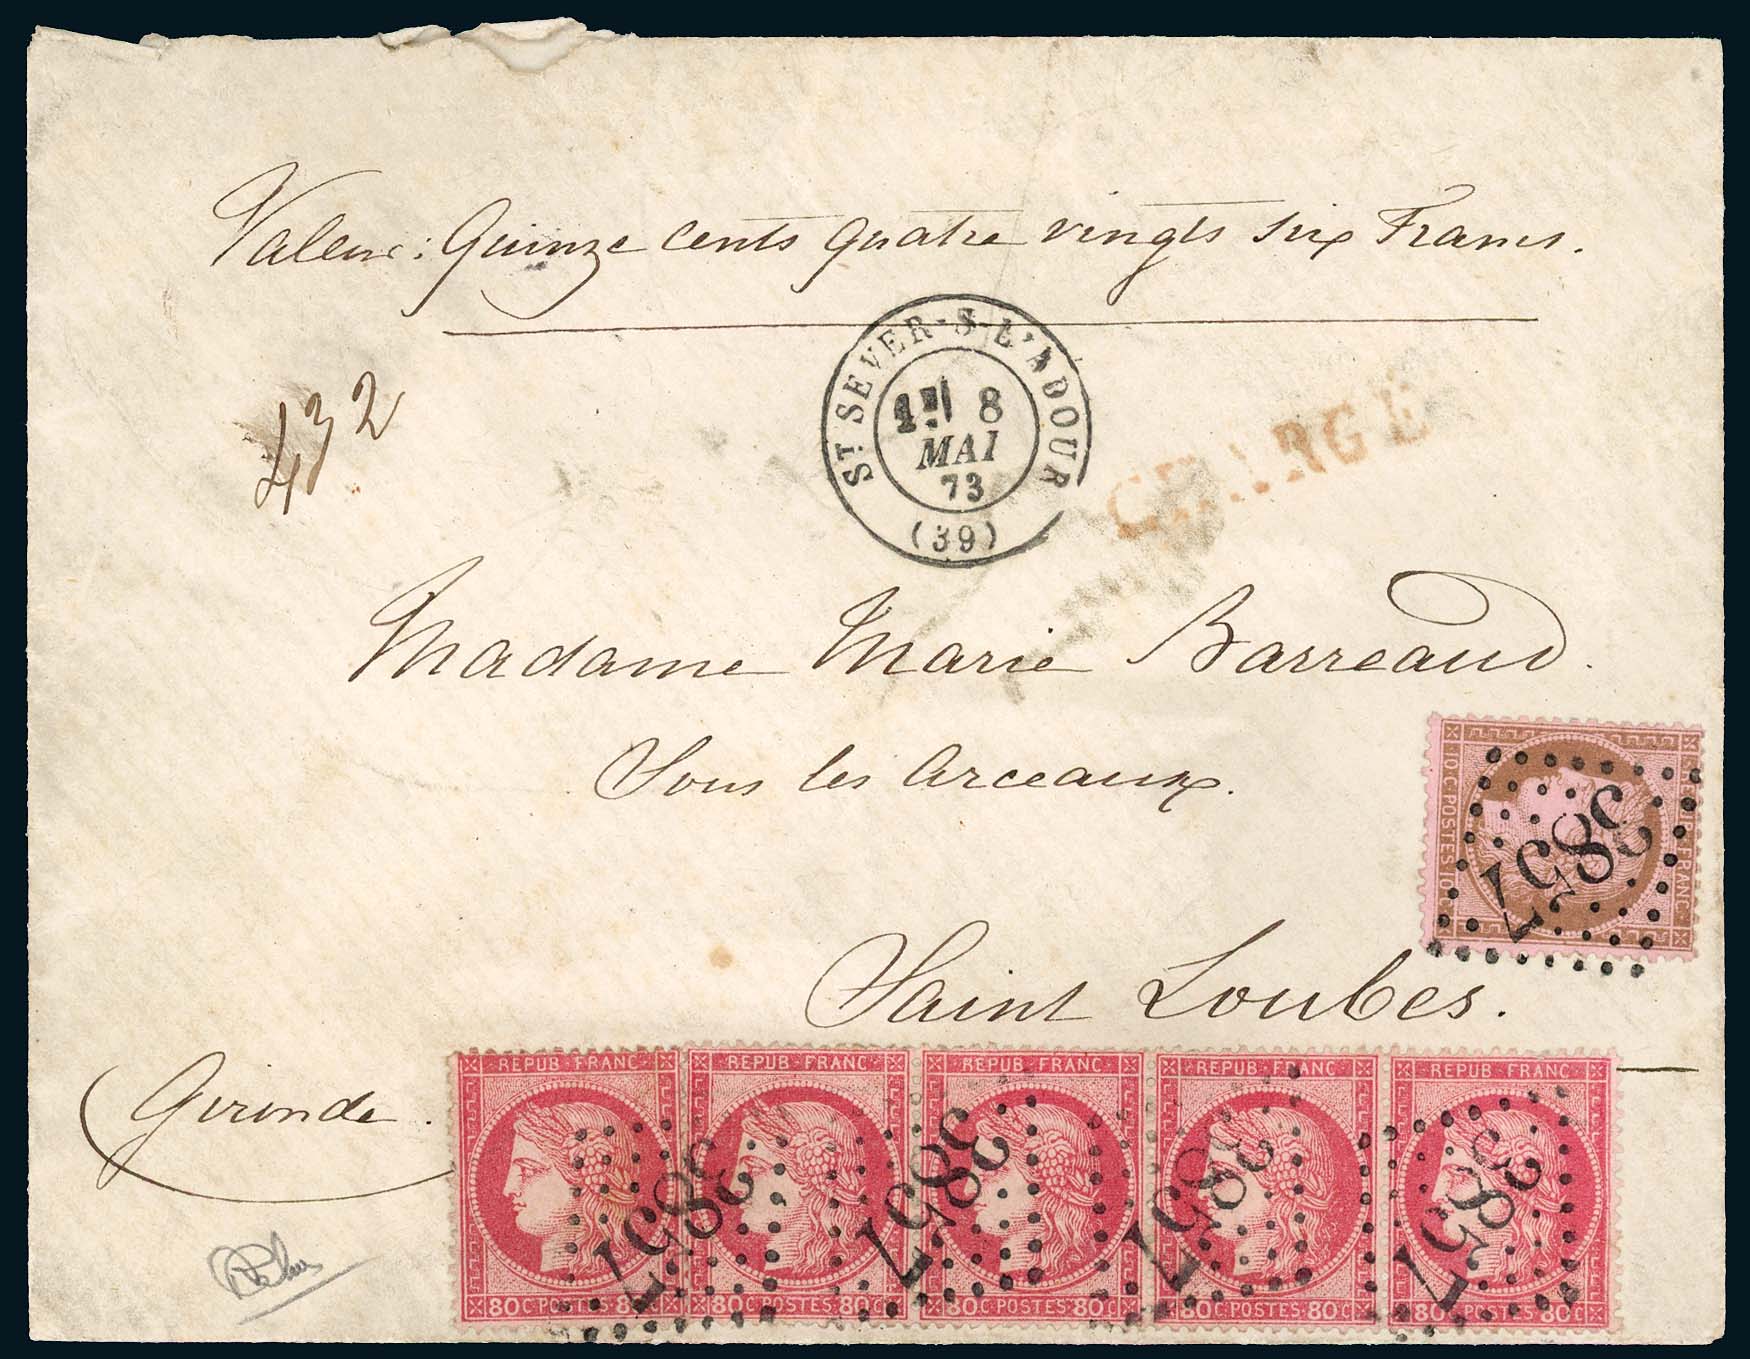 Valeur: Quinze cents quatre vingts six Francs.
432
ST SEVER-S-L'ADOUR
8
MAI
73
(39)
CHARGE
Madame Marie Barreaud.
Sous les Arceaux.
Saint Loubes.
Gironde.
REPUB FRANC
10 C POSTES 10 C
3857
REPUB FRANC REPUB FRANC REPUB FRANC REPUB FRANC REPUB FRANC
3857 3857 3857 3857
80 C POSTES 80 C 80 C POSTES 80 C 80 C POSTES 80 C 80 C POSTES 80 C 80 C POSTES 80 C